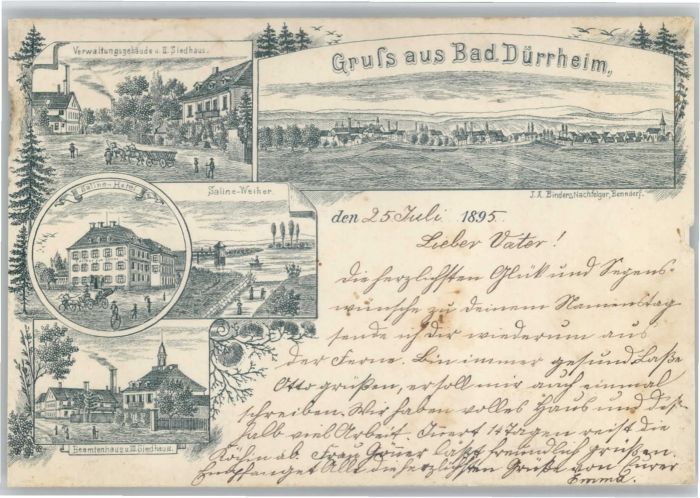 Verwaltungsgebäude u. II. Siedhaus.
Gruss aus Bad Dürrheim,
J. A. Binders Nachfolger, Bonndorf.
Saline-Hotel
Saline-Weiher.
Beamtenhaus u. III. Siedhaus.
den 25 Juli 1895.
Lieber Vater!
Die herzlichsten Glück und Segens-
wünsche zu deinem Namenstag
sende ich dir wiederum aus
der Ferne. Bin immer gesund Laße
Otto grüßen, er soll mir auch einmal
schreiben. Wir haben volles Haus und des-
halb viel Arbeit. In 14 Tagen reist die
Köhin ab. Frau läßt freundlich grüßen.
Empfanget Alle die herzlichsten Grüße von Eurer
Emma.